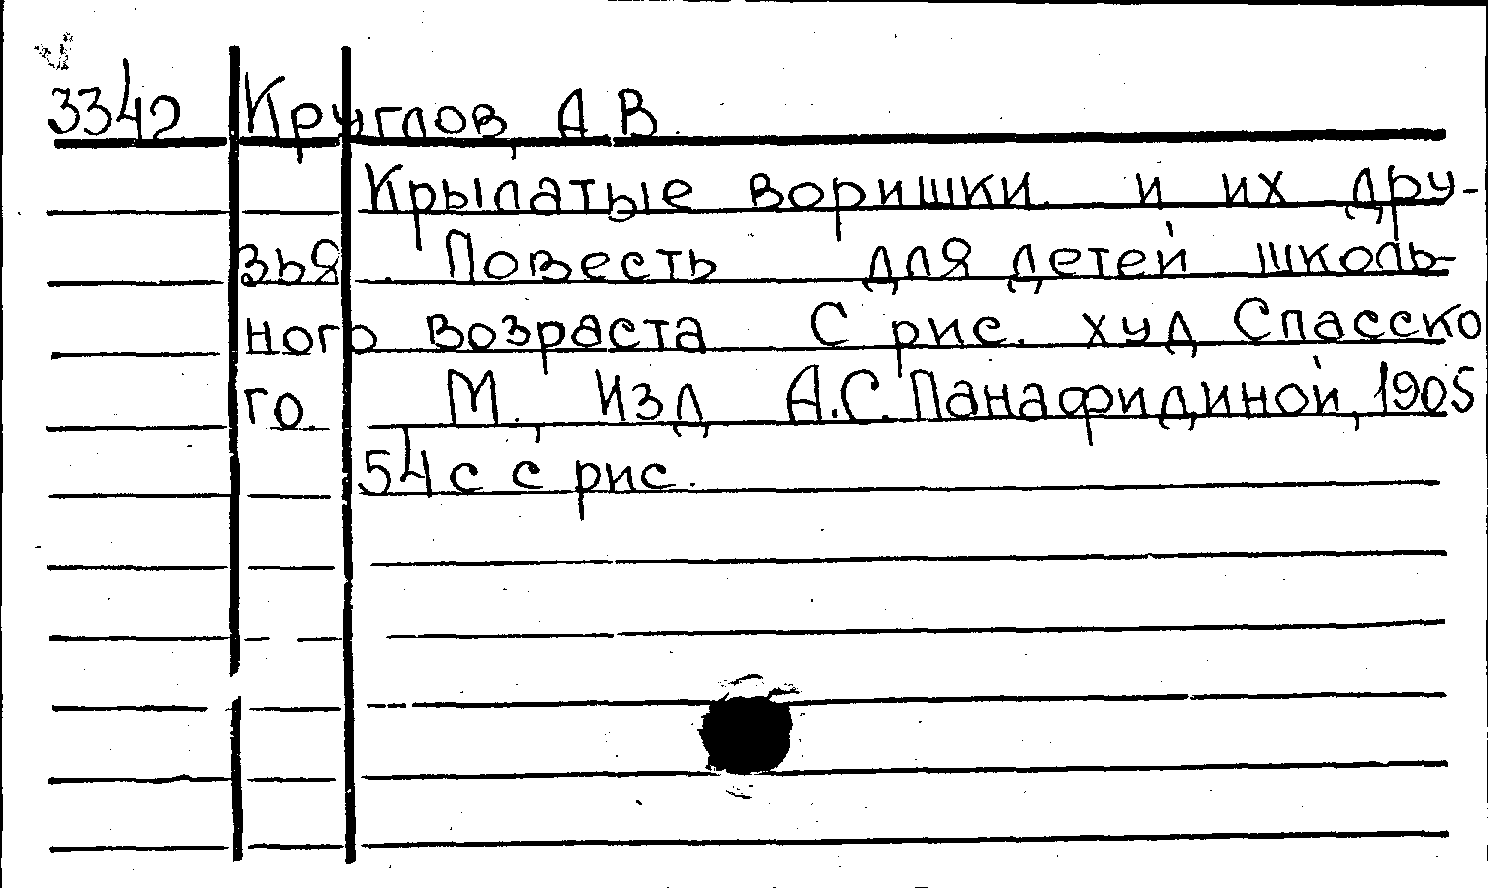 3342 Круглов, А В.
Крылатые воришки и их дру-
зья. Повесть для детей школь-
ного возраста С рис. худ Спасско
го. М., Изд А.С. Панафидиной, 1905
54 с с рис.